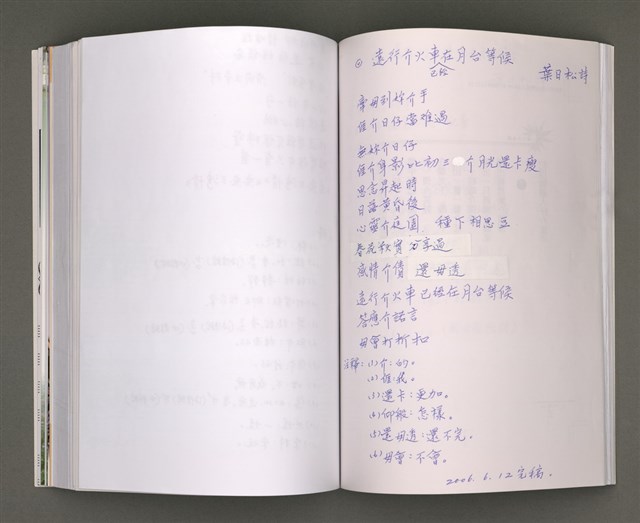 遠行介火車已經在月台等候
葉日松詩
牽毋到妳介手
𠊎介日仔當難過
無妳介日仔
𠊎介身影比初三介月光還卡瘦
思念昇起時
日落黃昏後
心頭介庭園 種下相思豆
春花秋實 分享過
感情介債 還毋透
遠行介火車已經在月台等候
答應介諾言
毋會打折扣
註釋：(1)介：的。
(2)𠊎：我。
(3)還卡：更加。
(4)仰般：怎樣。
(5)還毋透：還不完。
(6)毋會：不會。
2006.6.12完稿。